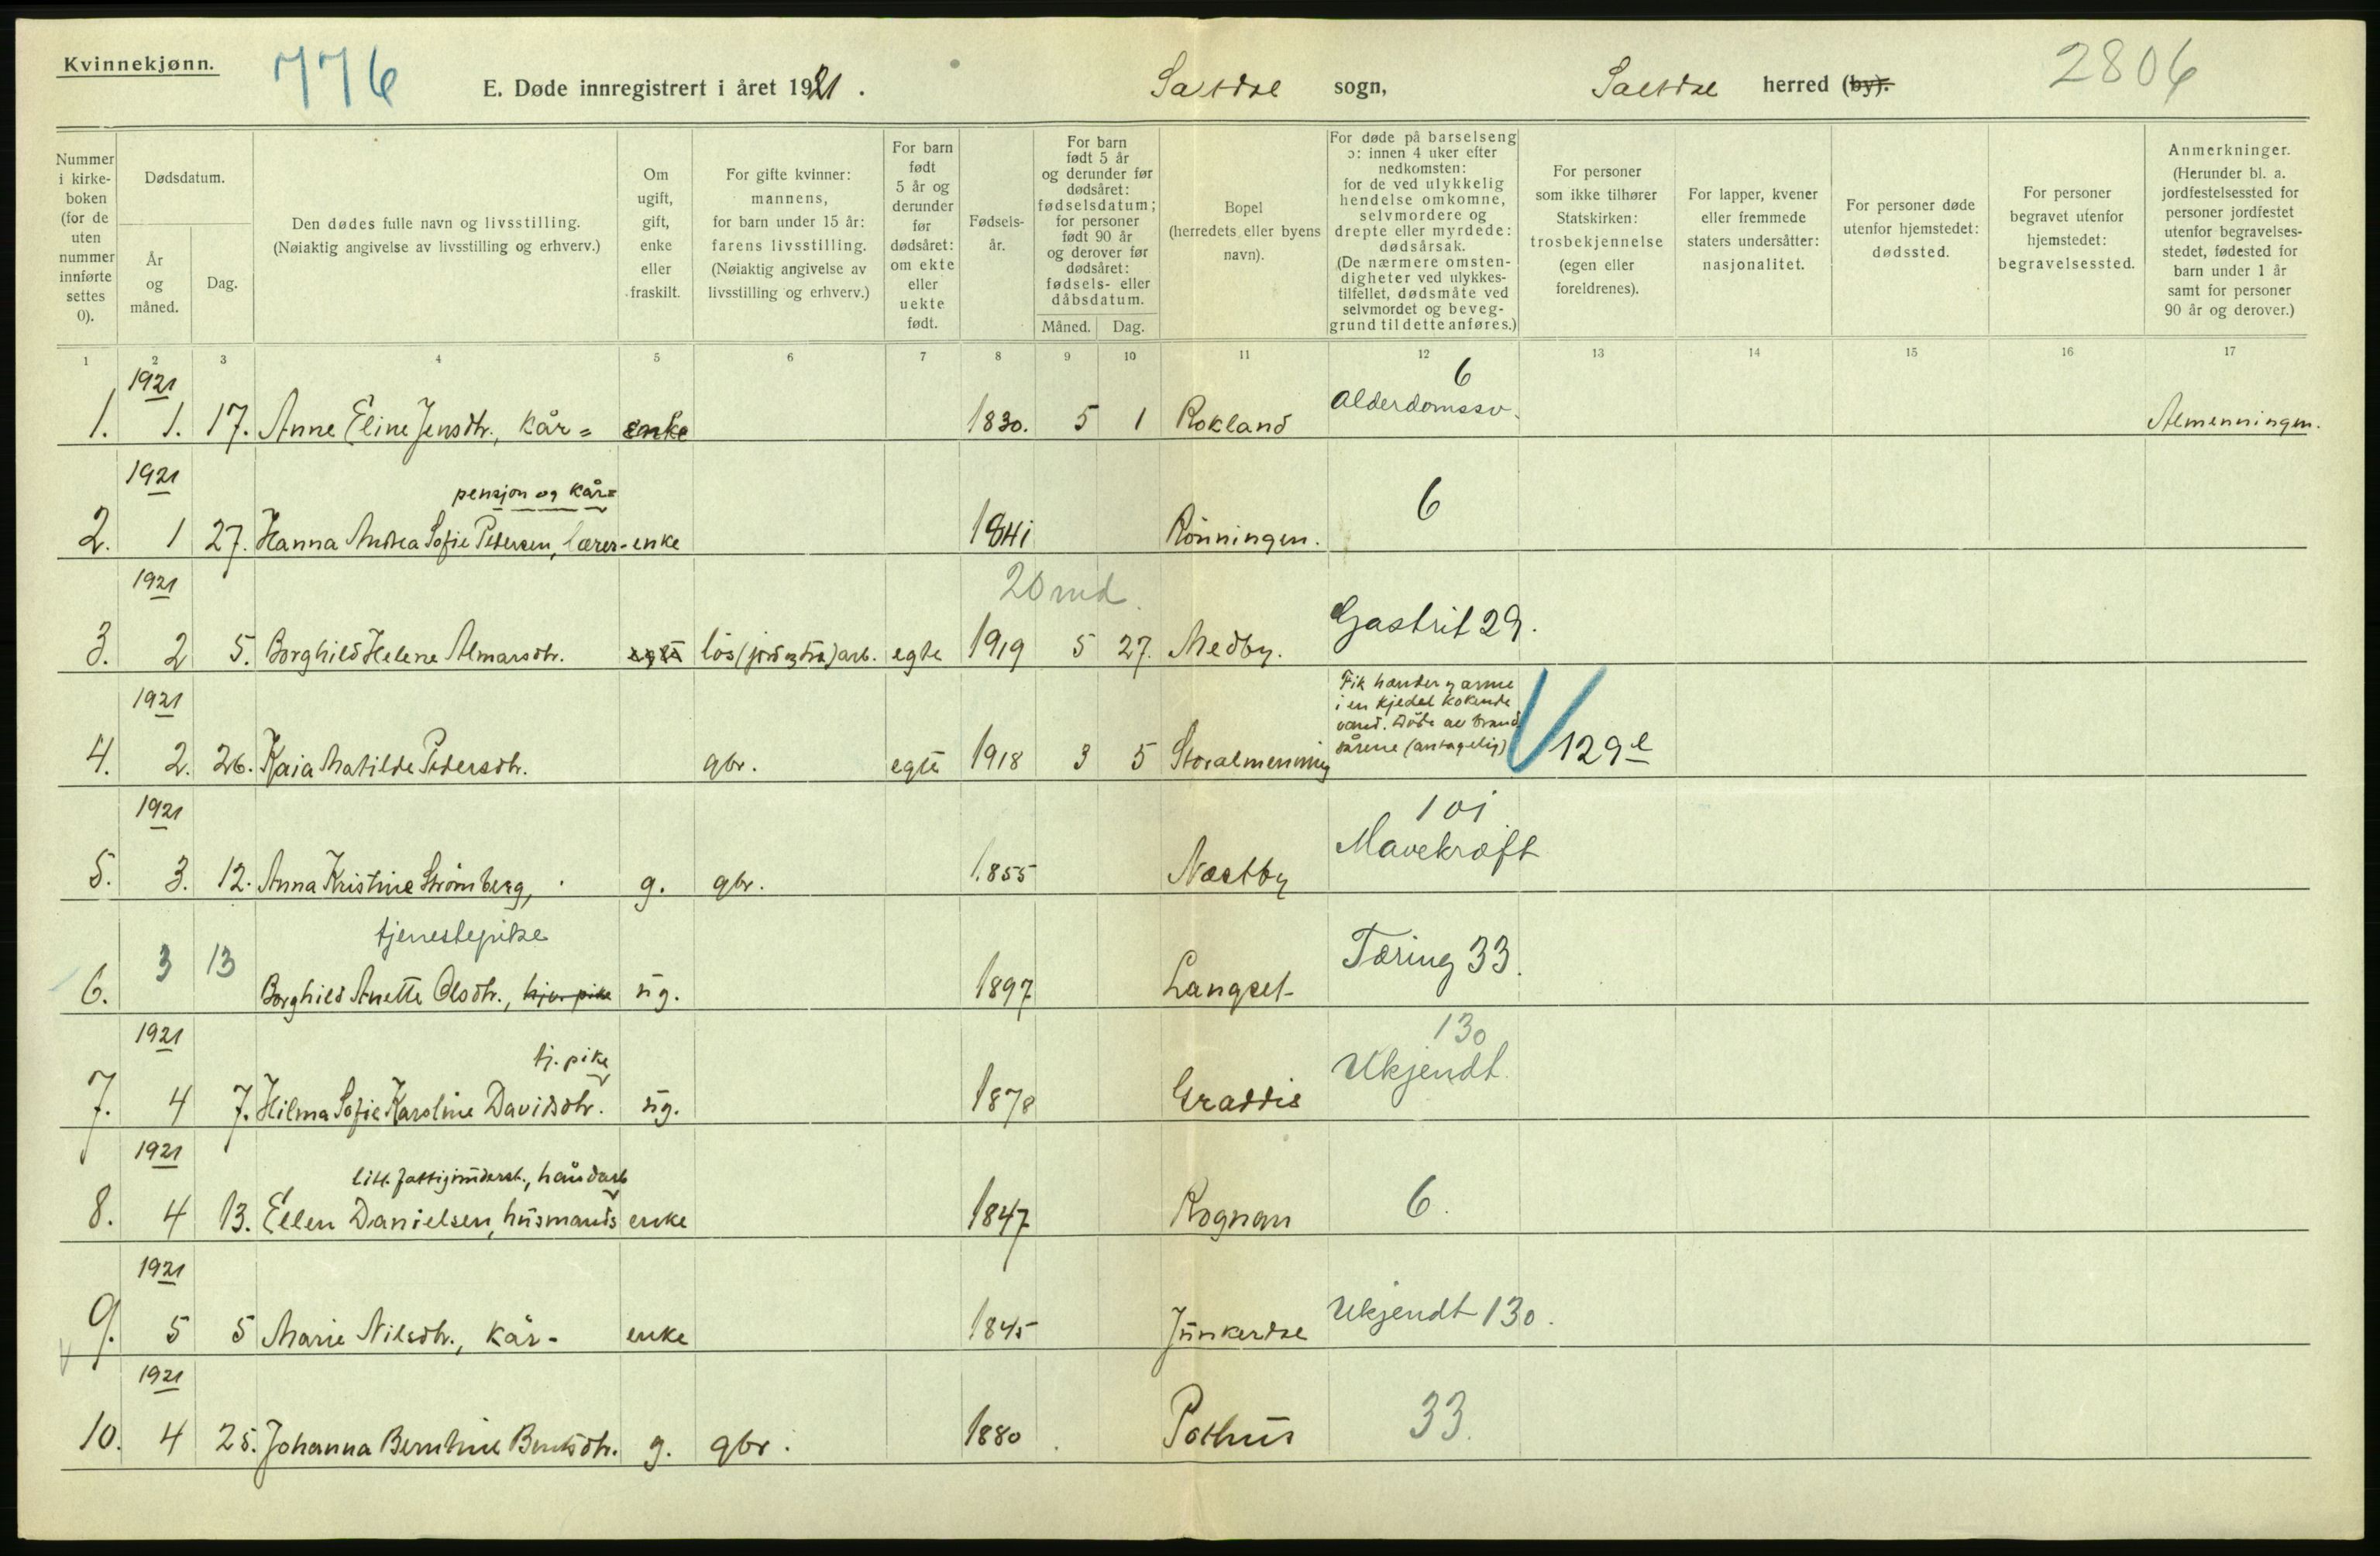 Kvinnekjønn.
776
E. Døde innregistrert i året 1921.
Saltdal sogn,
Saltdal herred (by).
2806
Nummer i kirke- boken (for de uten nummer innførte settes 0).
Dødsdatum.
År og måned.
Dag.
Den dødes fulle navn og livsstilling.
(Nøiaktig angivelse av livsstilling og erhverv.)
Om ugift, gift, enke eller fraskilt.
For gifte kvinner: mannens, for barn under 15 år: farens livsstilling. (Nøiaktig angivelse av livsstilling og erhverv.)
For barn født 5 år og derunder før dødsåret: om ekte eller uekte født.
Fødsels- år.
For barn født 5 år og derunder før dødsåret: fødselsdatum; for personer født 90 år og derover før dødsåret: fødsels- eller dåbsdatum.
Måned. Dag.
Bopel (herredets eller byens navn).
For døde på barselseng ɔ: innen 4 uker efter nedkomsten: for de ved ulykkelig hendelse omkomne, selvmordere og drepte eller myrdede: dødsårsak. (De nærmere omsten- digheter ved ulykkes- tilfellet, dødsmåte ved selvmordet og beveg- grund til dette anføres.)
For personer som ikke tilhører Statskirken: trosbekjennelse (egen eller foreldrenes).
For lapper, kvener eller fremmede staters undersåtter: nasjonalitet.
For personer døde utenfor hjemstedet: dødssted.
For personer begravet utenfor hjemstedet: begravelsessted.
Anmerkninger. (Herunder bl. a. jordfestelsessted for personer jordfestet utenfor begravelses- stedet, fødested for barn under 1 år samt for personer 90 år og derover.)
1 2 3 4 5 6 7 8 9 10 11 12 13 14 15 16 17
1921 6
1. 1. 17. Anne Eline Jensdtr., kår= enke 1830. 5 1 Rokland Alderdomssv. Almenningen.
1921 pensjon og kår=
2. 1 27. Hanna Andrea Sofie Pedersen, lærer- enke 1841 Rönningen. 6
1921 20 md.
3. 2 5. Borghild Helene Almarsdtr. lös (jord og tra) arb. egte 1919 5 27. Medby. Gastrit 29.
1921 Fik hænder og arme
i en kjedel kokende
vand. Döde av brand
sårene (antagelig)
4. 2. 26. Kaia Matilde Pedersdtr. gbr. egte 1918 3 5 Storalmenning 129 e
1921 101
5. 3. 12. Anna Kristine Strömberg, g. gbr. 1855 Næstby Mavekræft
tjenestepike
6. 3 13 Borghild Anette Olsdtr., tjen. pike ug. 1897 Langset Tæring 33.
1921 tj. pike 130
7. 4 7. Hilma Sofie Karoline Davidsdtr. ug. 1878 Graddis Ukjendt
1921 litt fattigunderst., håndarb
8. 4 13. Ellen Danielsen, husmands enke 1847 Rognan 6.
1921
9. 5 5 Marie Nilsdtr., kår- enke 1845 Junkerdal Ukjendt 130.
1921
10. 4 25. Johanna Berntine Bentsdtr. g. gbr. 1880 Pothus 33.